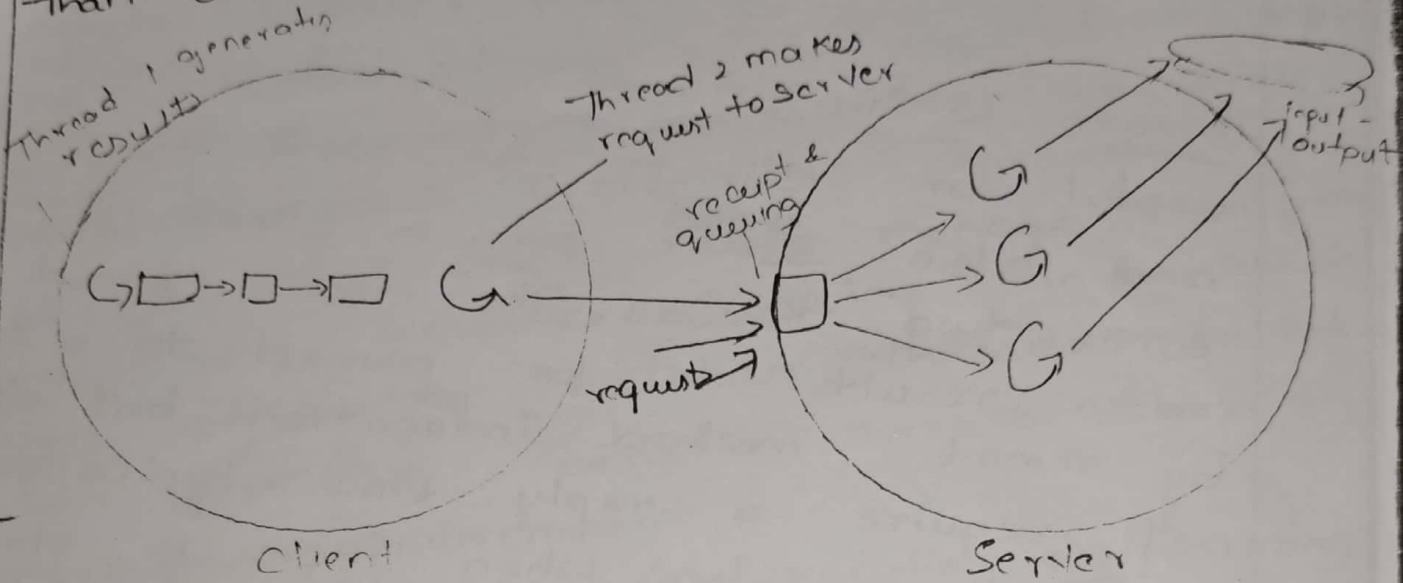 Than
Thread 1 generates
results
Thread 2 makes
request to server
receipt &
queuing
input-
output
requests
Client
Server